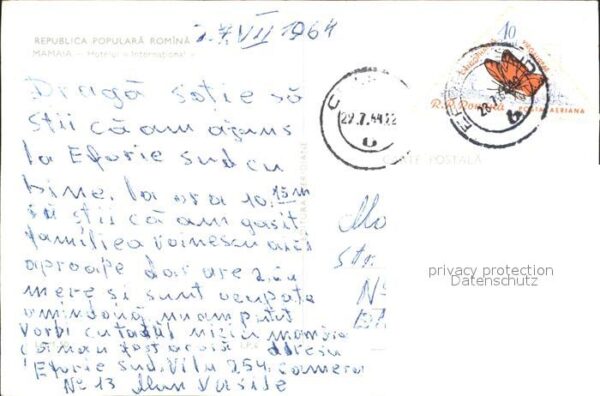 REPUBLICA POPULARĂ ROMÎNĂ
MAMAIA — Hotelul « Internațional »
VII 1964
Dragă soție să
știi că am ajuns
la Eforie sud cu
bine. la ora 10,15 m
să știi că am gasit
familiea voinescu aici
aproape dar are 2
mere și sunt ocupate
amîndouă nu am putut
vorbi cu tatăl nici
adresa
Eforie sud. Vila 254. camera
No 13 Man Vasile
10
R.P. Romînă
POȘTA AERIANA
29.7.64.22
CARTE POSTALĂ
Str.
No
privacy protection
Datenschutz